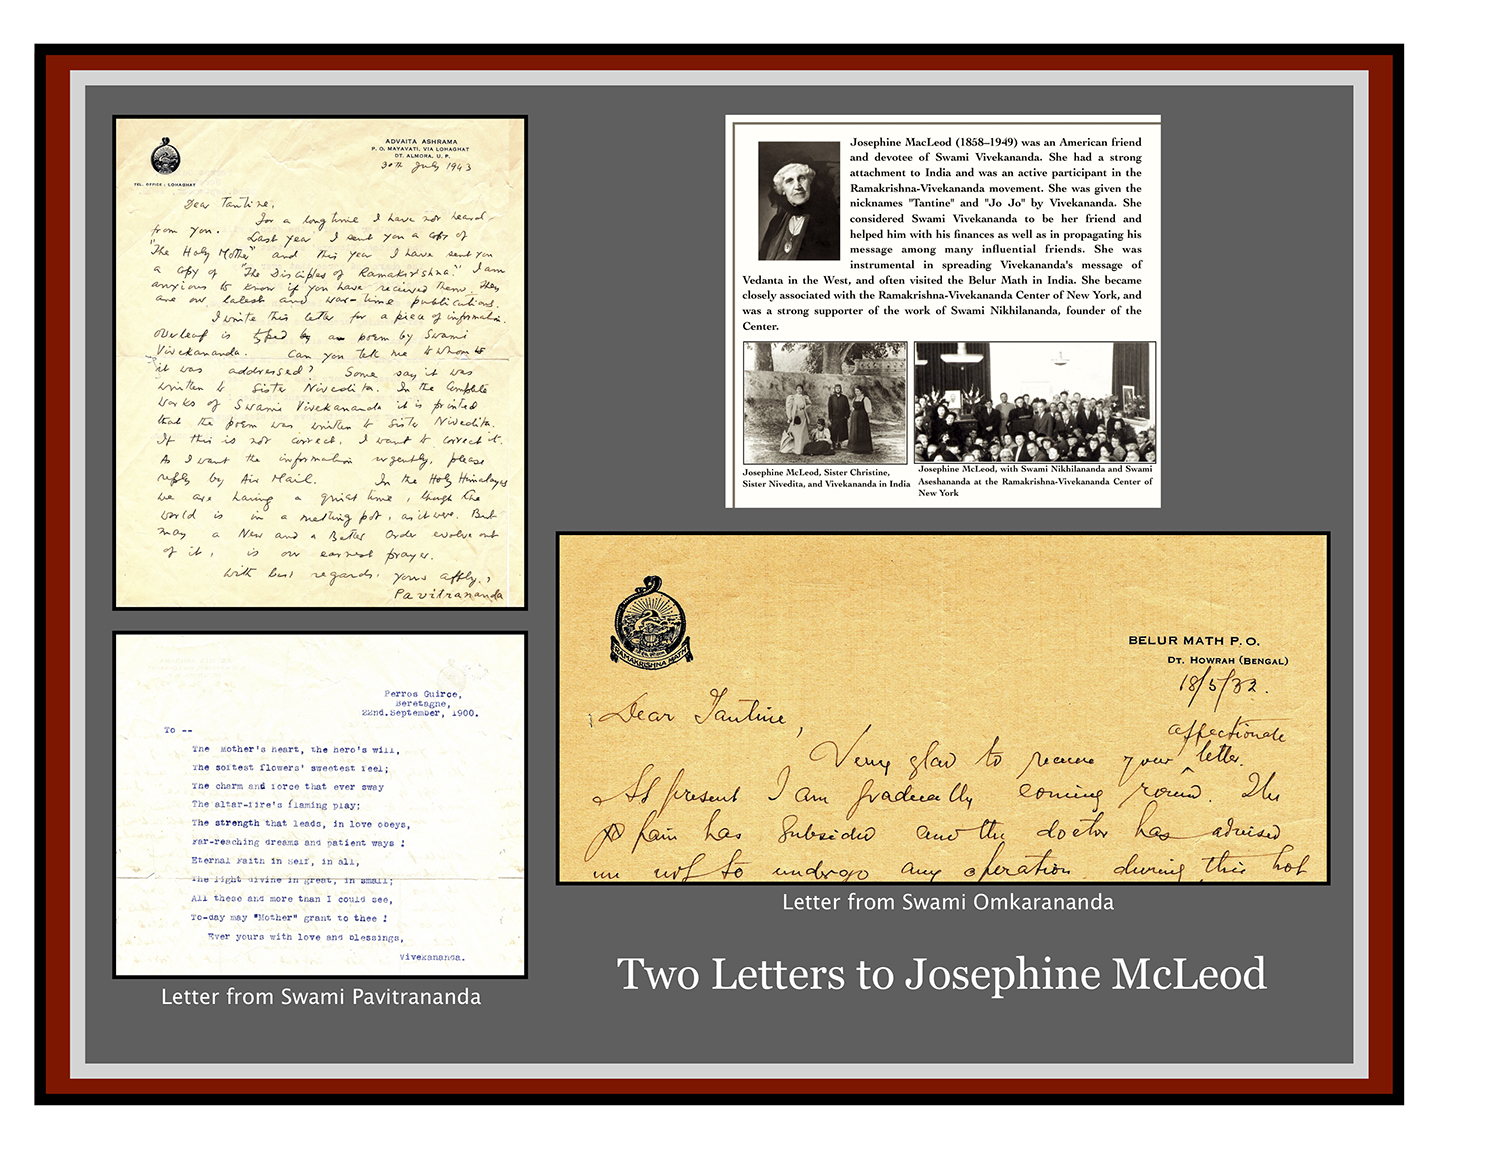 ADVAITA ASHRAMA
P. O. MAYAVATI, VIA LOHAGHAT
DT. ALMORA, U. P.
TEL. OFFICE : LOHAGHAT
30th July 1943
Dear Tantine,
For a long time I have not heard
from you. Last year I sent you a copy of
"The Holy Mother" and this year I have sent you
a copy of "The Disciples of Ramakrishna." I am
anxious to know if you have received them. They
are our latest and war-time publications.
I write this letter for a piece of information.
Overleaf is typed a poem by Swami
Vivekananda. Can you tell me to whom
it was addressed? Some say it was
written to Sister Nivedita. In the Complete
Works of Swami Vivekananda it is printed
that the poem was written to Sister Nivedita.
If this is not correct, I want to correct it.
As I want the information urgently, please
reply by Air Mail. In the Holy Himalayas
we are having a quiet time, though the
world is in a melting pot, as it were. But
may a New and a Better Order evolve out
of it, is our earnest prayer.
With best regards, yours affly.,
Pavitrananda
Perros Guirce,
Beretagne,
22nd.September, 1900.
To --
The Mother's heart, the hero's will,
The softest flowers' sweetest feel;
The charm and force that ever sway
The altar-fire's flaming play;
The strength that leads, in love obeys,
Far-reaching dreams and patient ways !
Eternal Faith in Self, in all,
The light divine in great, in small;
All these and more than I could see,
To-day may "Mother" grant to thee !
Ever yours with love and blessings,
Vivekananda.
Letter from Swami Pavitrananda
Josephine MacLeod (1858–1949) was an American friend
and devotee of Swami Vivekananda. She had a strong
attachment to India and was an active participant in the
Ramakrishna-Vivekananda movement. She was given the
nicknames "Tantine" and "Jo Jo" by Vivekananda. She
considered Swami Vivekananda to be her friend and
helped him with his finances as well as in propagating his
message among many influential friends. She was
instrumental in spreading Vivekananda's message of
Vedanta in the West, and often visited the Belur Math in India. She became
closely associated with the Ramakrishna-Vivekananda Center of New York, and
was a strong supporter of the work of Swami Nikhilananda, founder of the
Center.
Josephine McLeod, Sister Christine,
Sister Nivedita, and Vivekananda in India
Josephine McLeod, with Swami Nikhilananda and Swami
Aseshananda at the Ramakrishna-Vivekananda Center of
New York
RAMAKRISHNA MATH
BELUR MATH P. O.
DT. HOWRAH (BENGAL)
18/5/32.
Dear Tantine,
affectionate
Very glad to receive your letter.
At present I am gradually coming round. The
pain has subsided and the doctor has advised
me not to undergo any operation during this hot
Letter from Swami Omkarananda
Two Letters to Josephine McLeod